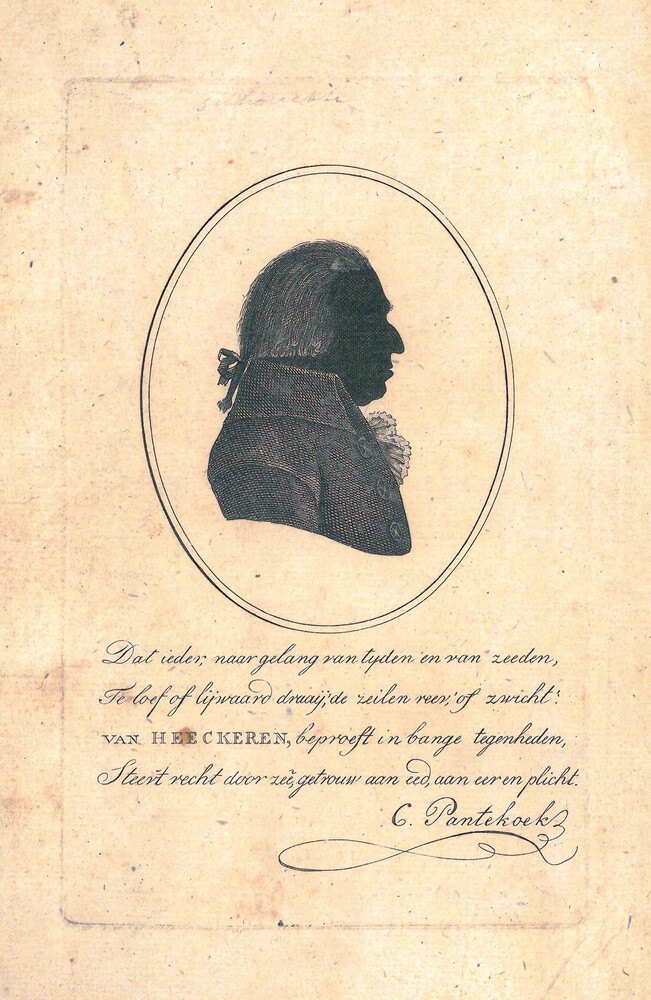 Dat ieder, naar gelang van tyden en van zeeden,
Te loef of lijwaard draaij', de zeilen reev,' of zwicht:
VAN HEECKEREN, beproeft in bange tegenheden,
Steevt recht door zeë, getrouw aan eed, aan eer en plicht.
C. Pantekoek